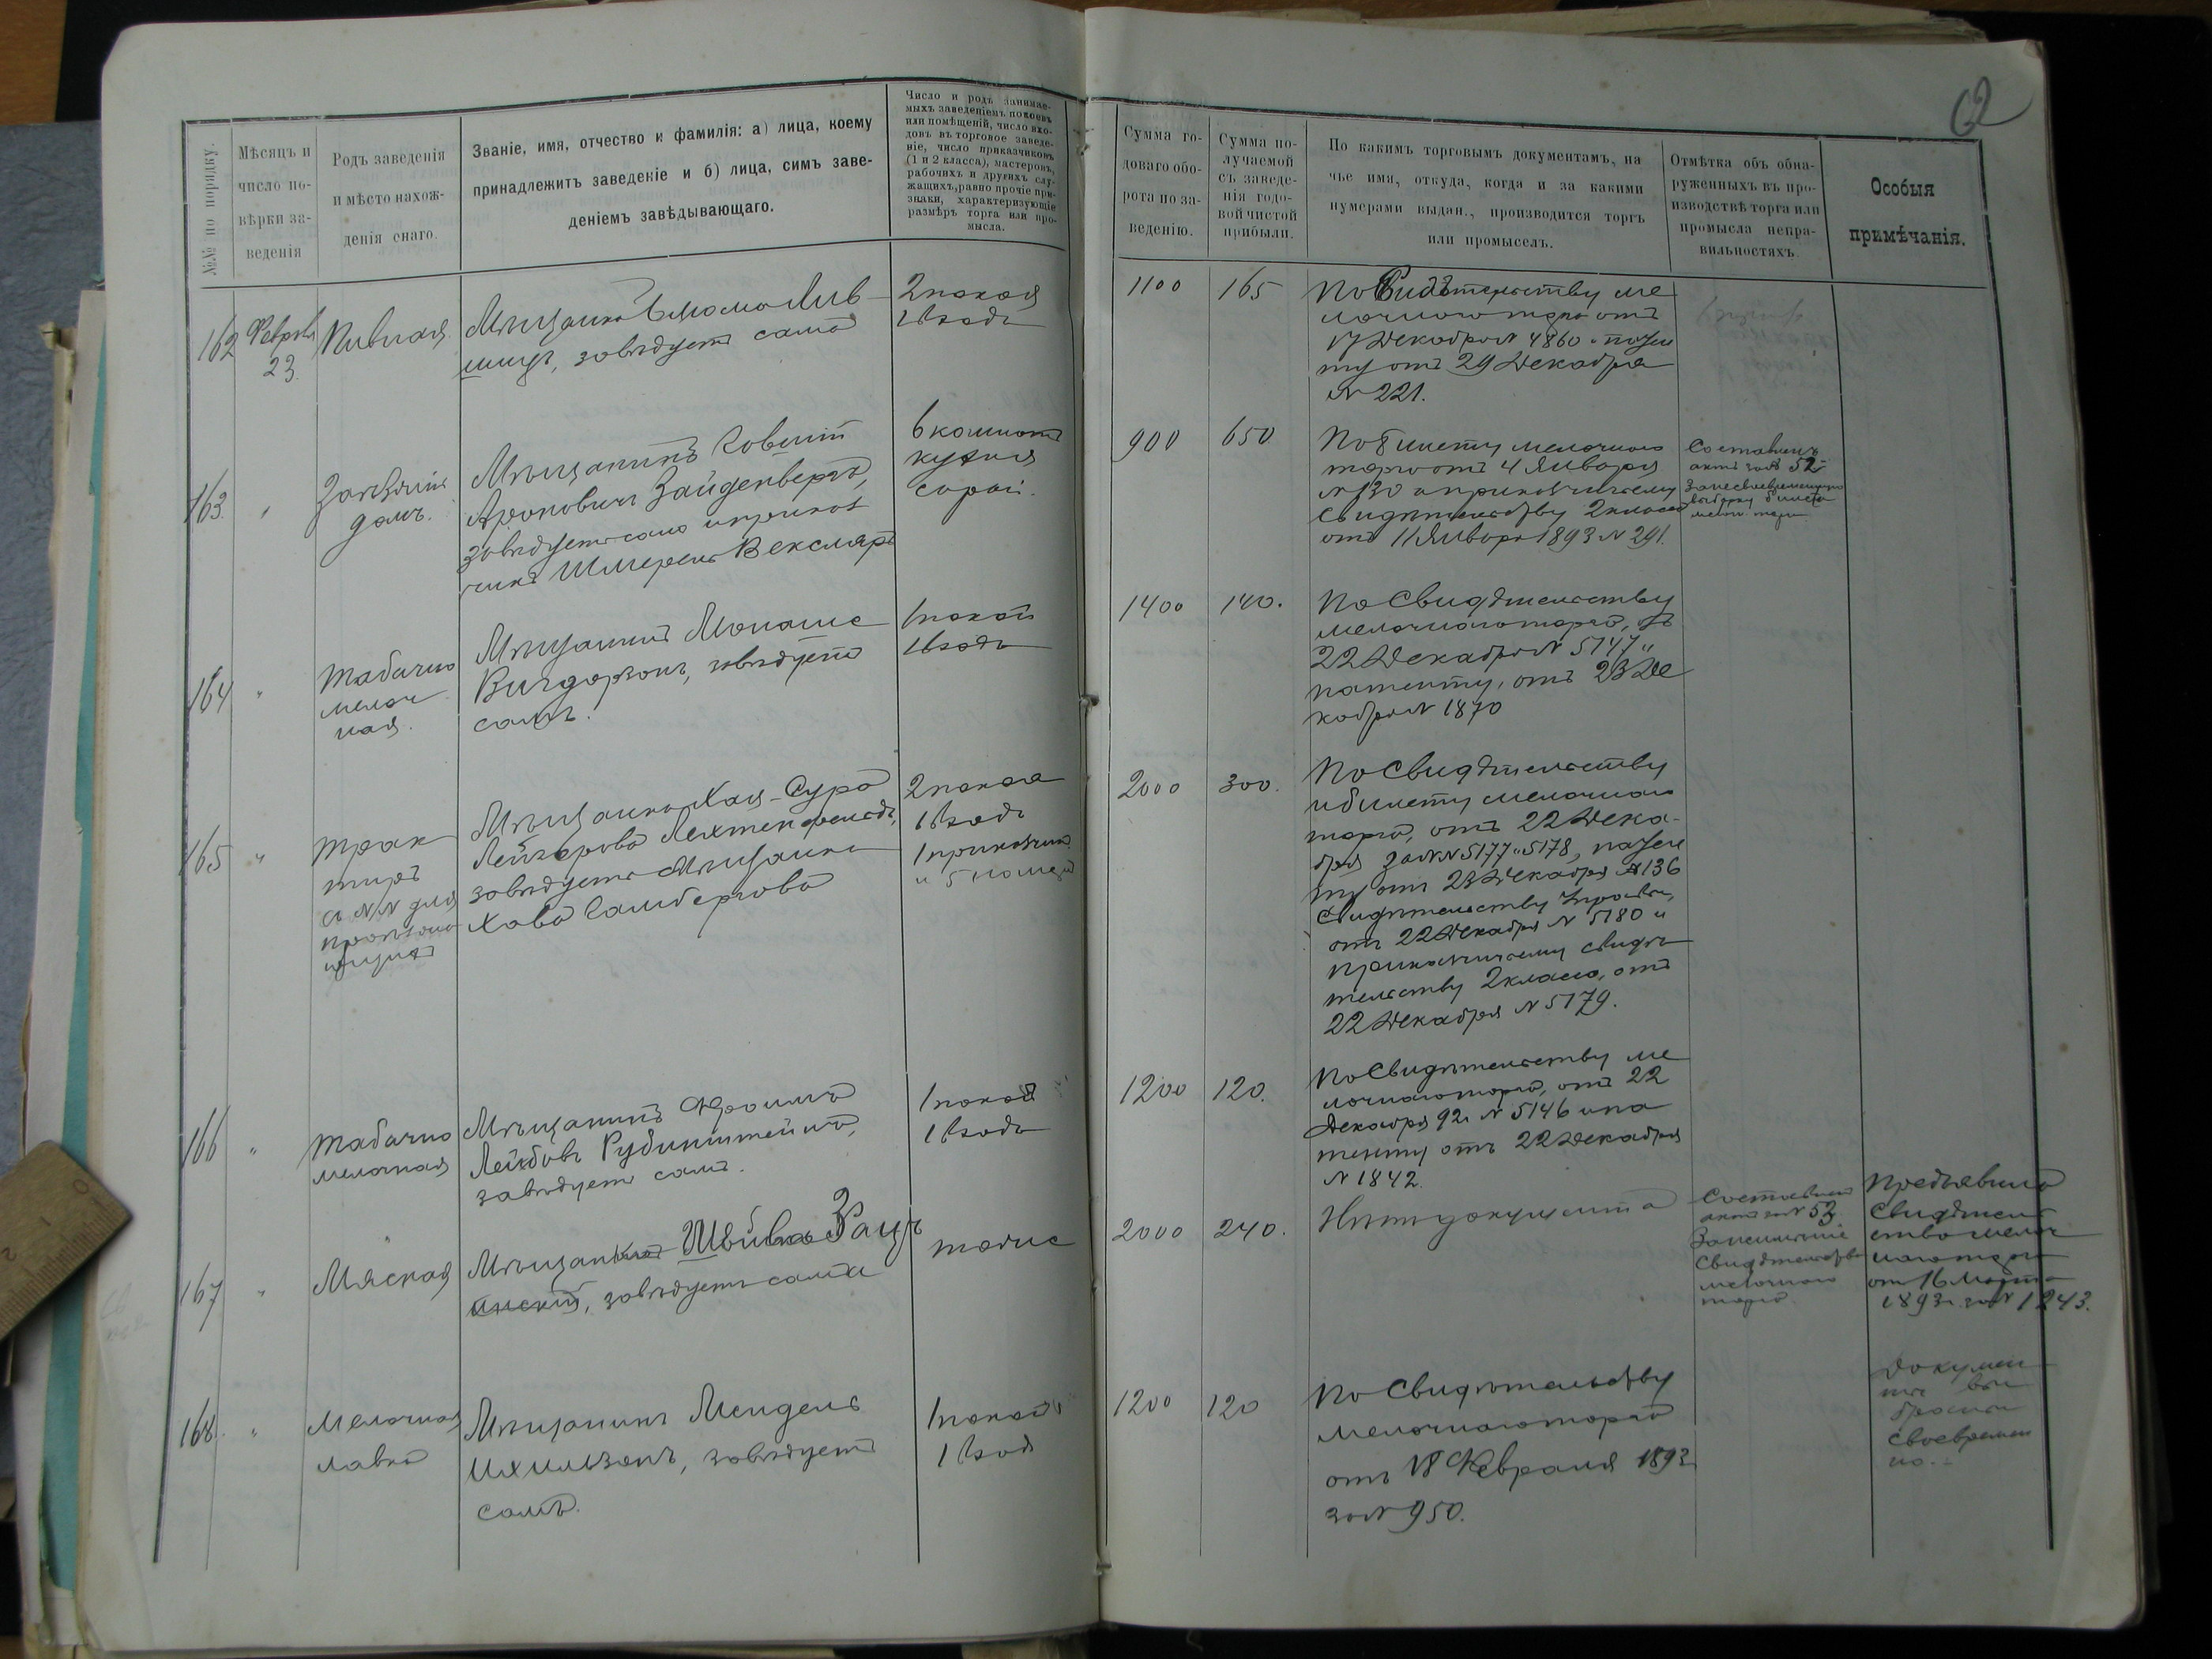 62
№№ по порядку.
Мѣсяцъ и
число по-
вѣрки за-
веденія
Родъ заведенія
и мѣсто нахож-
денія онаго.
Званіе, имя, отчество и фамилія: а) лица, коему
принадлежитъ заведеніе и б) лица, симъ заве-
деніемъ завѣдывающаго.
Число и родъ занимае-
мыхъ заведеніемъ покоевъ
или помѣщеній, число вхо-
довъ въ торговое заведе-
ніе, число приказчиковъ
(1 и 2 класса), мастеровъ,
рабочихъ и другихъ слу-
жащихъ, равно прочіе при-
знаки, характеризующіе
размѣръ торга или про-
мысла.
Сумма го-
доваго обо-
рота по за-
веденію.
Сумма по-
лучаемой
съ заведе-
нія годо-
вой чистой
прибыли.
По какимъ торговымъ документамъ, на
чье имя, откуда, когда и за какими
нумерами выдан., производится торгъ
или промыселъ.
Отмѣтка объ обна-
руженныхъ въ про-
изводствѣ торга или
промысла непра-
вильностяхъ.
Особыя
примѣчанія.
162
Февраля
23.
Пивная
Мѣщанка
, завѣдуетъ сама
2 покоя
1 входъ
1100
165
По Свидѣтельству ме
лочного торга отъ
17 Декабря № 4860 и патен
ту отъ 29 Декабря
№ 221.
163.
"
Заѣзжій
домъ.
Мѣщанинъ Говшій
Ароновичъ Зайденбергъ,
завѣдуетъ самъ и приказ
чикъ Шмерель Векслеръ
6 комнатъ
кухня
сарай.
900
650
По билету мелочного
торга отъ 4 Января
№ 130 и приказчичьему
Свидѣтельству 2 класса
отъ 11 Января 1893 № 291.
Составленъ
актъ за № 52
За несвоевременную
выборку билета
мелоч. торга
164
"
Табачно
мелоч
ная.
Мѣщанинъ Монаше
Вигдорзонъ, завѣдуетъ
самъ.
1 покой
1 входъ
1400
140.
По Свидѣтельству
мелочного торга, отъ
22 Декабря № 5147 и
патенту, отъ 23 Де
кабря № 1870
165
"
Трак
тиръ
съ №№ для
Мѣщанка Хая-Сура
Лейзерова Лехтенфельдъ,
завѣдуетъ Мѣщанка
Хава Гамбергова
2 покоя
1 входъ
1 приказчикъ
и 5
2000
300.
По Свидѣтельству
и билету мелочного
торга, отъ 22 Дека-
бря за №№ 5177 и 5178, патен
ту отъ 23 Декабря № 136
Свидѣтельству
отъ 22 Декабря № 5180 и
приказчичьему свидѣ
тельству 2 класса, отъ
22 Декабря № 5179.
166
"
Табачно
мелочная
Мѣщанинъ Фроимъ
Лейбовъ Рубинштейнъ,
завѣдуетъ самъ.
1 покой
1 входъ
1200
120.
По Свидѣтельству ме
лочного торга, отъ 22
Декабря 92 г. № 5146 и па
тенту отъ 22 Декабря
№ 1842.
167
"
Мясная
Мѣщанка Шейва Зацъ
, завѣдуетъ сама
тоже
2000
240.
Нѣтъ документа
Составленъ
актъ за № 53
За неимѣніе
Свидѣтельства
мелочного
торга.
Предъявила
Свидѣтель
ство мелоч
ного торга
отъ 16 Марта
1893 г. за № 1243.
168.
"
Мелочная
лавка
Мѣщанинъ Мендель
Ихильзонъ, завѣдуетъ
самъ.
1 покой
1 входъ
1200
120
По Свидѣтельству
мелочного торга
отъ 18 Февраля 1893
за № 950.
Докумен
ты вы
браны
своевремен
но.